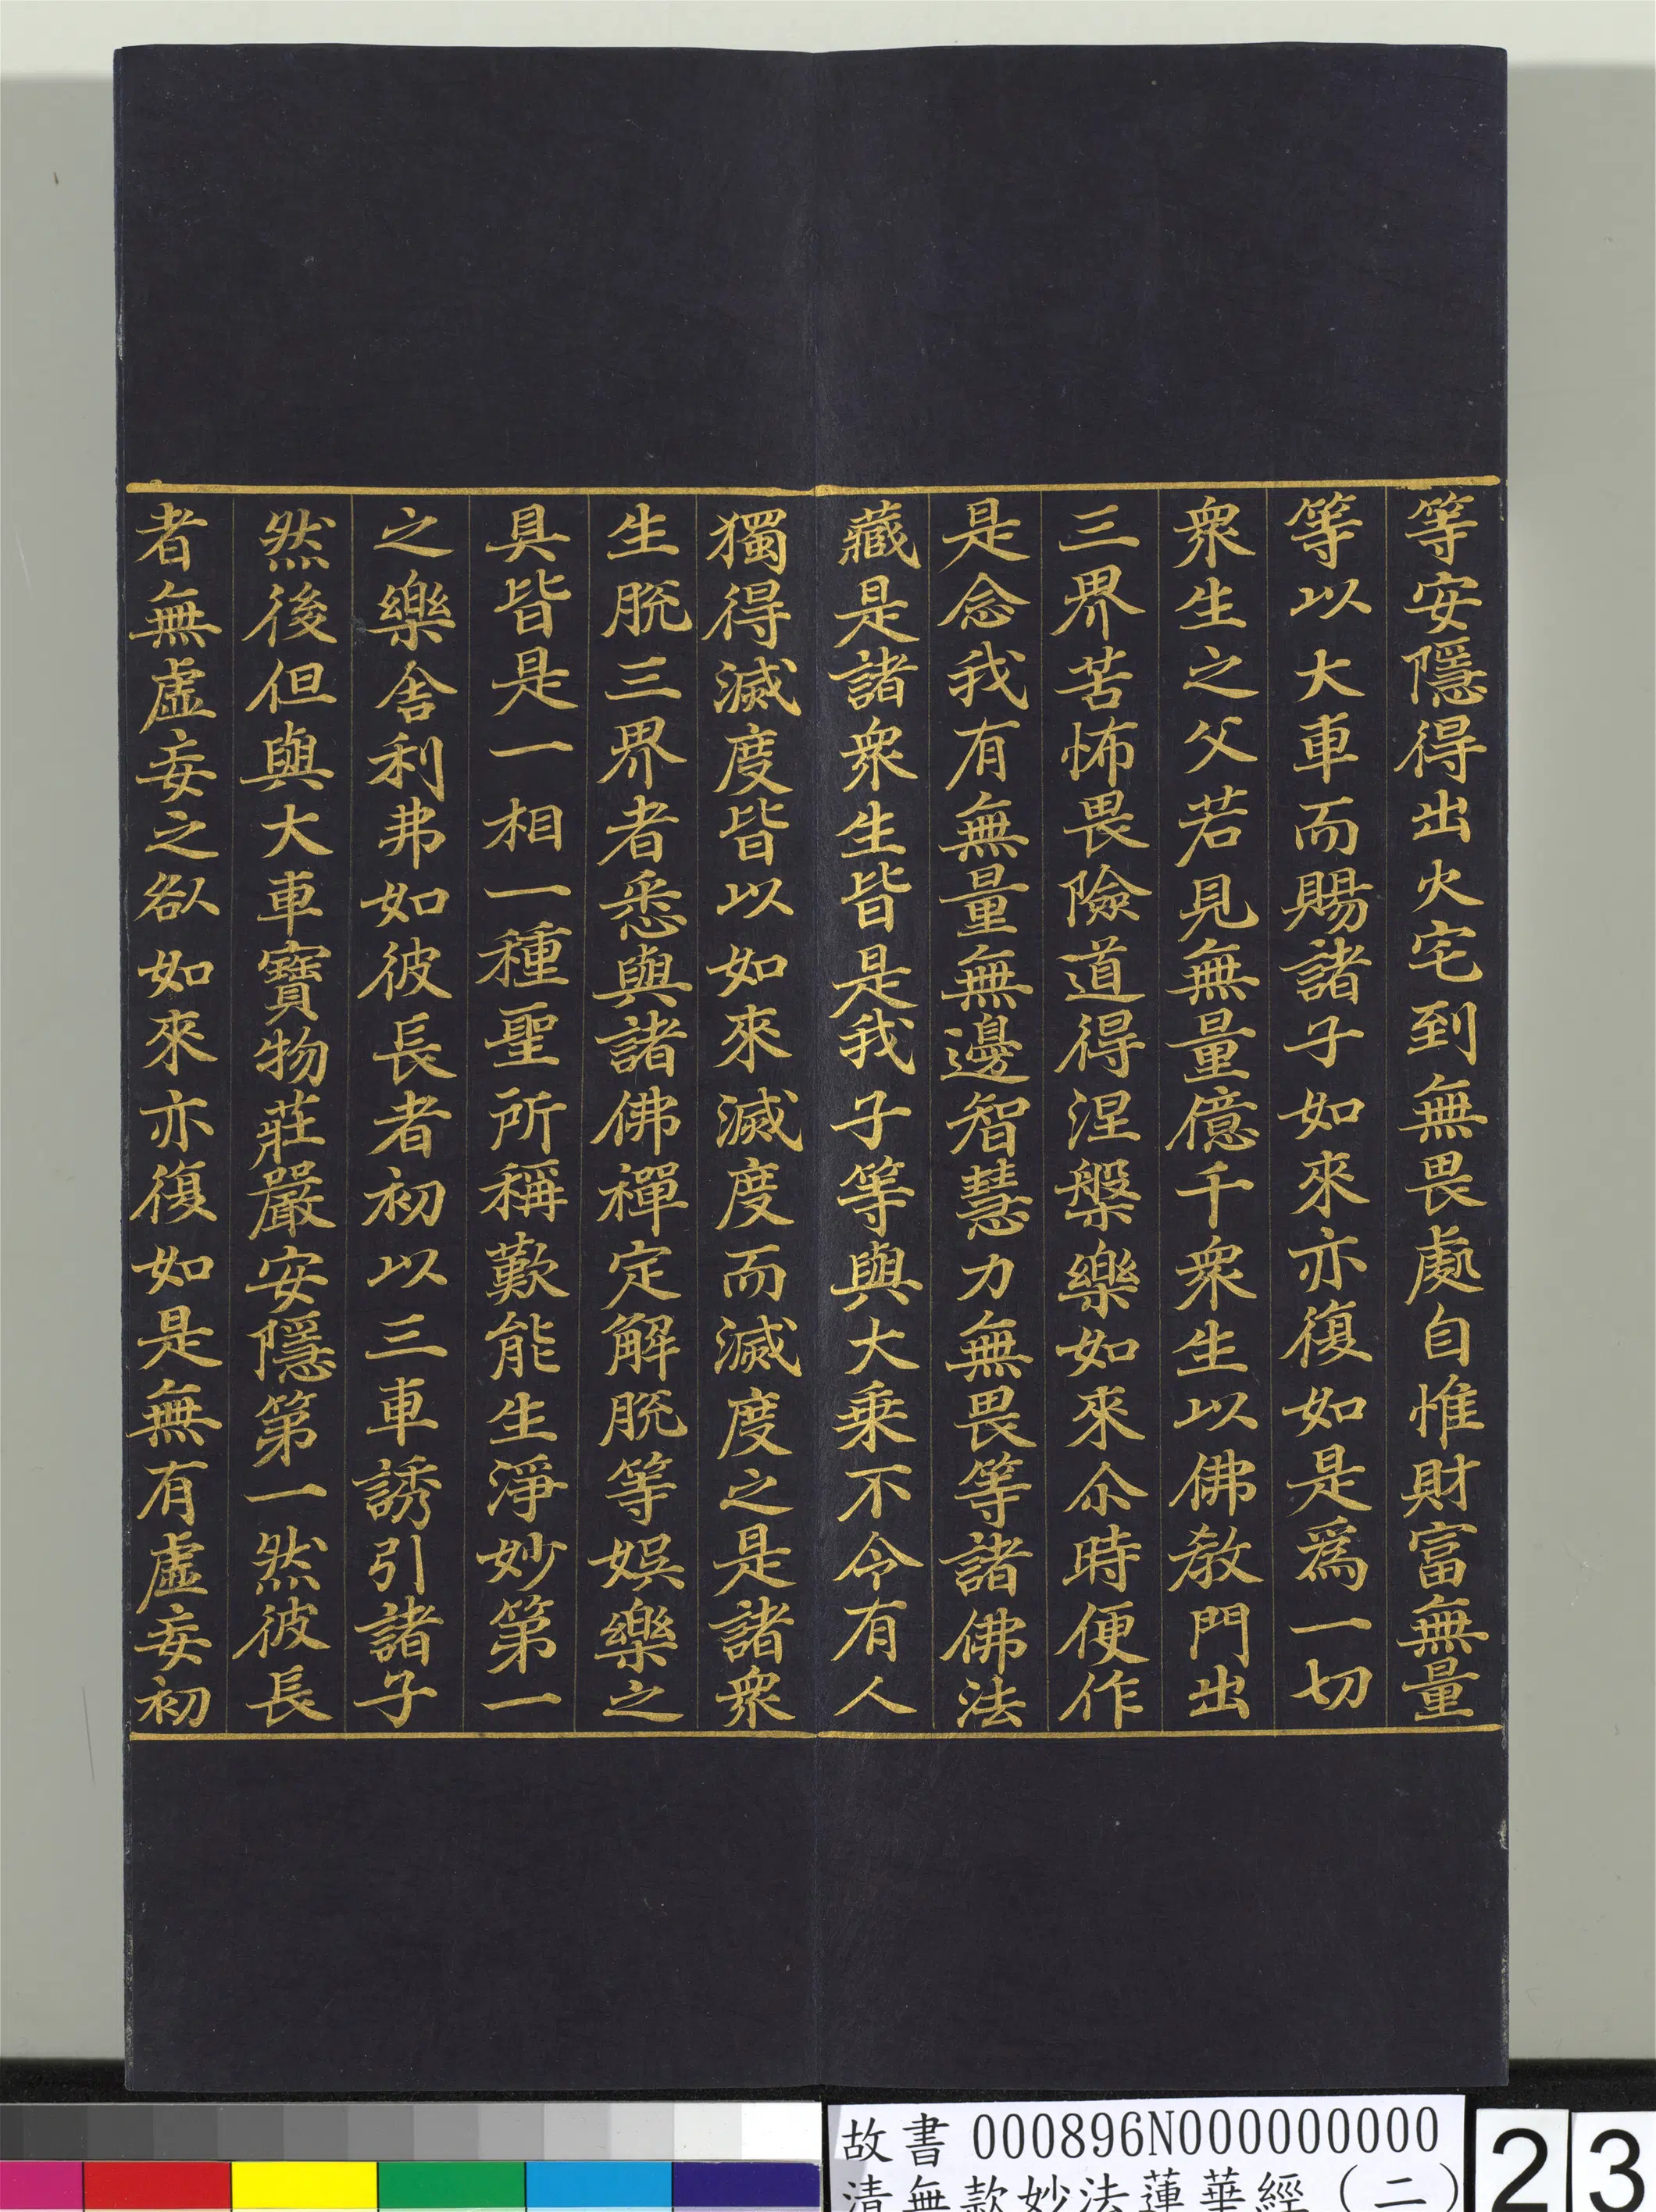 等安隱得出火宅到無畏處自惟財富無量
等以大車而賜諸子如來亦復如是為一切
衆生之父若見無量億千衆生以佛教門出
三界苦怖畏險道得涅槃樂如來尒時便作
是念我有無量無邊智慧力無畏等諸佛法
藏是諸衆生皆是我子等與大乗不令有人
獨得滅度皆以如來滅度而滅度之是諸衆
生脫三界者悉與諸佛禪定解脫等娛樂之
具皆是一相一種聖所稱歎能生淨妙第一
之樂舎利弗如彼長者初以三車誘引諸子
然後但與大車寶物莊嚴安隱第一然彼長
者無虛妄之咎如來亦復如是無有虛妄初
故書 000896N000000000
清無款妙法蓮華經(二)
23